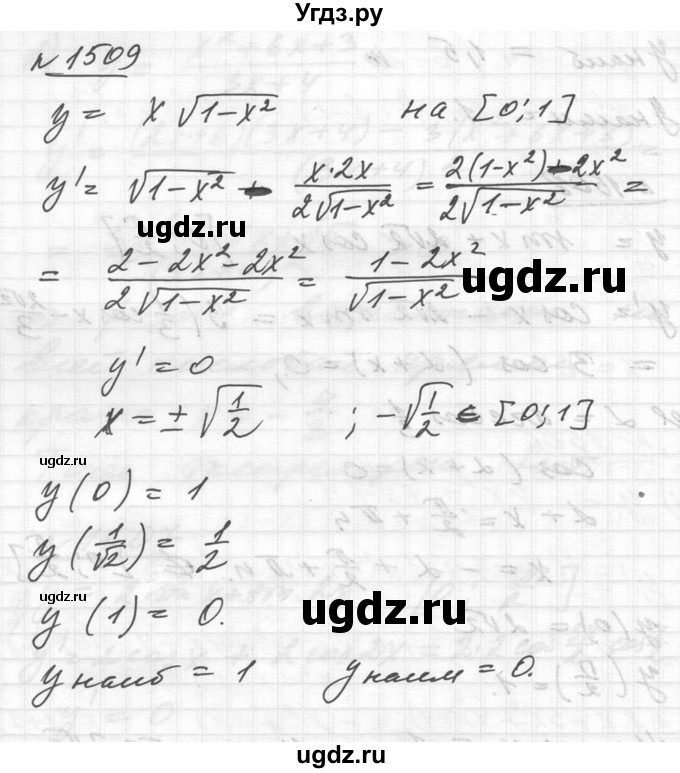 Угдз.ру
№1509
y = x √(1-x²) на [0;1]
y' = √(1-x²) - x·2x / 2√(1-x²) = 2(1-x²) - 2x² / 2√(1-x²) =
ugdz.ru
= 2 - 2x² - 2x² / 2√(1-x²) = 1 - 2x² / √(1-x²)
ugdz.ru
y' = 0
x = ± √(1/2) ; -√(1/2) ∈ [0;1]
ugdz.ru
y(0) = 1
y(1/√2) = 1/2
ugdz.ru
ugdz.ru
y(1) = 0.
y наиб = 1 y наим = 0.
ugdz.ru